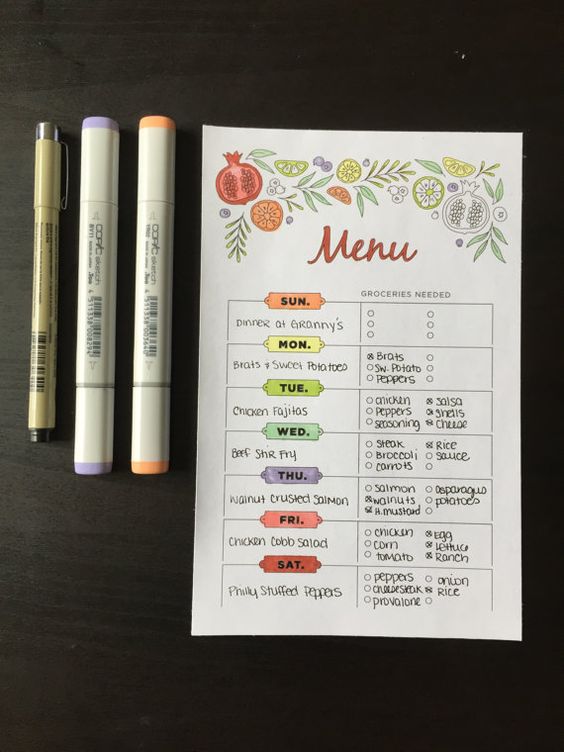 Menu
GROCERIES NEEDED
SUN.
Dinner at Granny's
MON.
Brats & Sweet Potatoes
Brats
Sw. Potato
Peppers
TUE.
Chicken Fajitas
chicken salsa
Peppers shells
seasoning cheese
WED.
Beef Stir Fry
steak Rice
Broccoli sauce
carrots
THU.
Walnut Crusted Salmon
salmon Asparagus
walnuts potatoes
H.mustard
FRI.
Chicken Cobb Salad
chicken Egg
corn lettuce
tomato Ranch
SAT.
Philly Stuffed Peppers
peppers onion
cheesesteak Rice
provalone
COPIC sketch
BV11
COPIC sketch